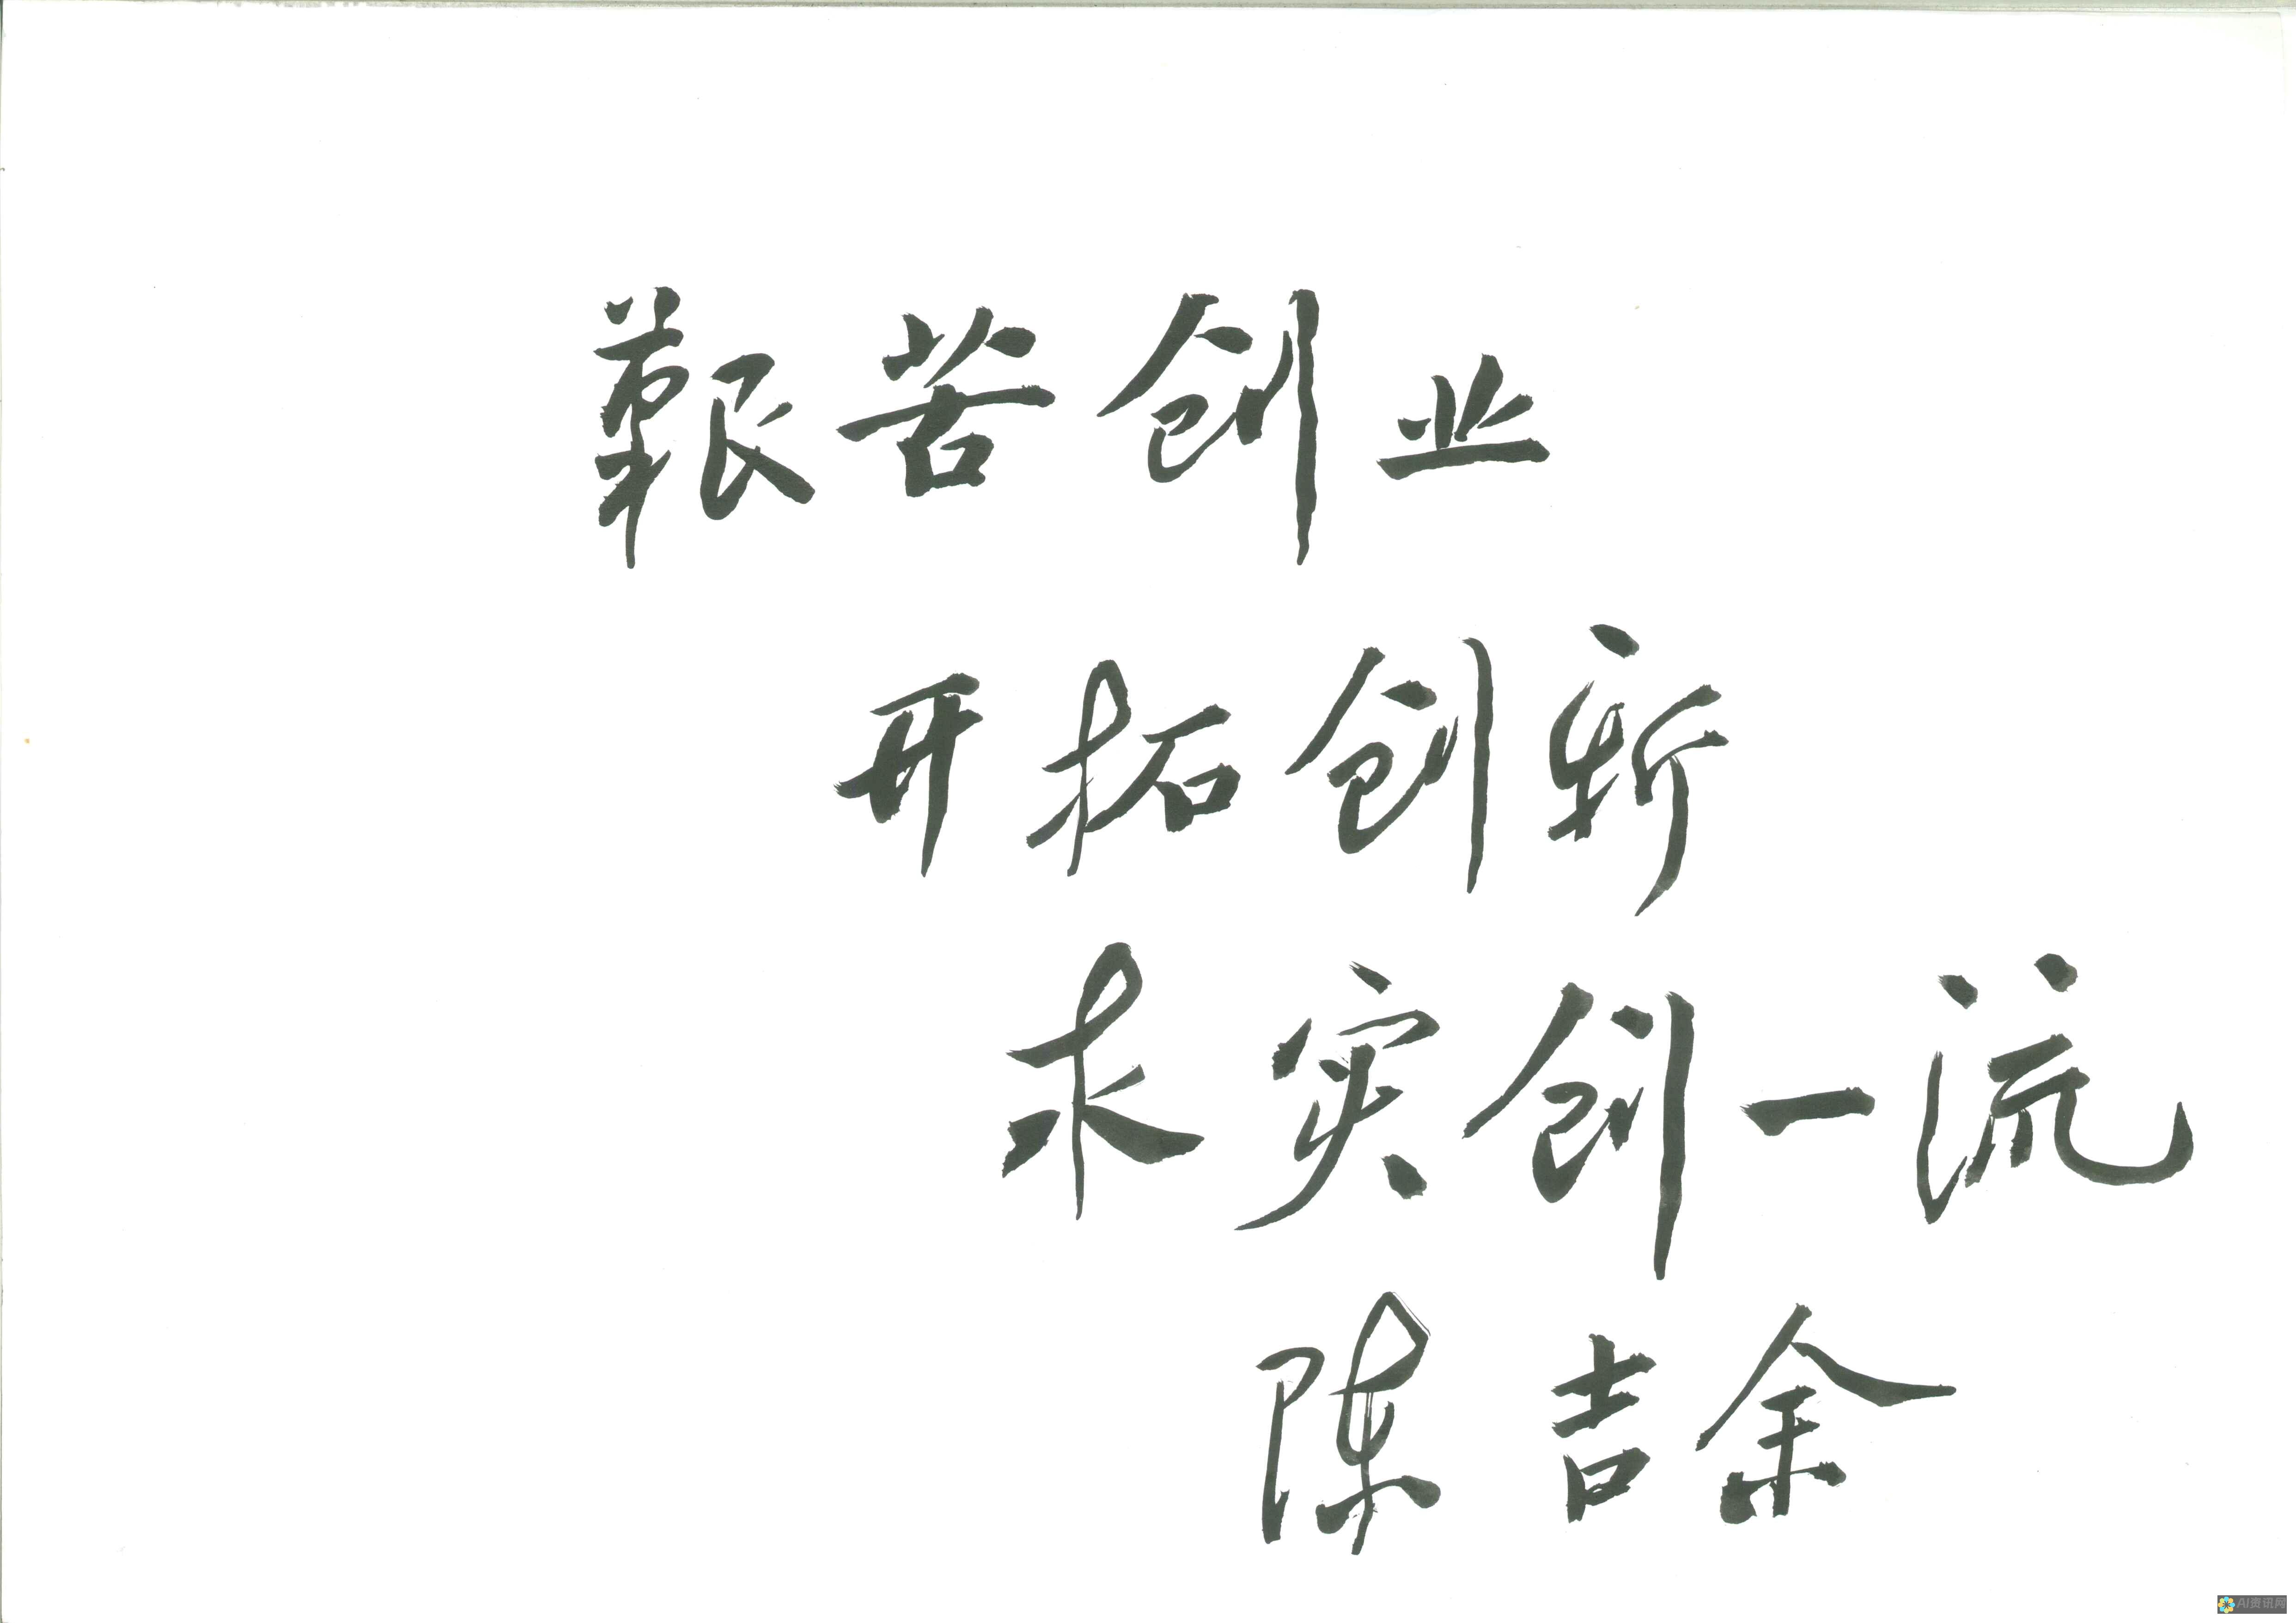 艰苦创业
开拓创新
求实创一流
陈吉余
AI资讯网